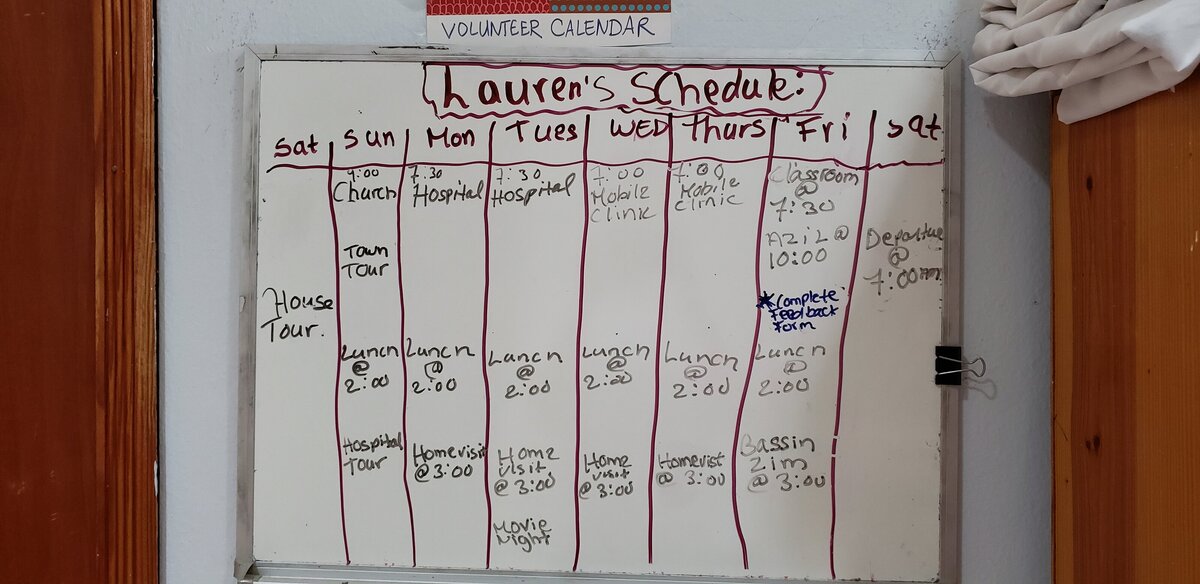 VOLUNTEER CALENDAR
Lauren's Schedule:
Sat Sun Mon Tues WED Thurs Fri Sat
House
Tour.
9:00
Church
Town
Tour
Lunch
@
2:00
Hospital
Tour
7:30
Hospital
Lunch
@
2:00
Homevisit
@ 3:00
7:30
Hospital
Lunch
@
2:00
Home
visit
@ 3:00
Movie
Night
7:00
Mobile
Clinic
Lunch
@
2:00
Home
visit
@ 3:00
7:00
Mobile
Clinic
Lunch
@
2:00
Homevist
@ 3:00
Classroom
@
7:30
Azil @
10:00
*Complete
Feedback
Form
Lunch
@
2:00
Bassin
Zim
@ 3:00
Departue
@
7:00am